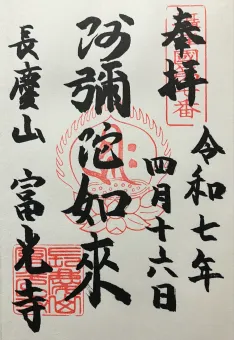 奉拝
令和七年
四月十六日
阿彌陀如來
長慶山 富光寺